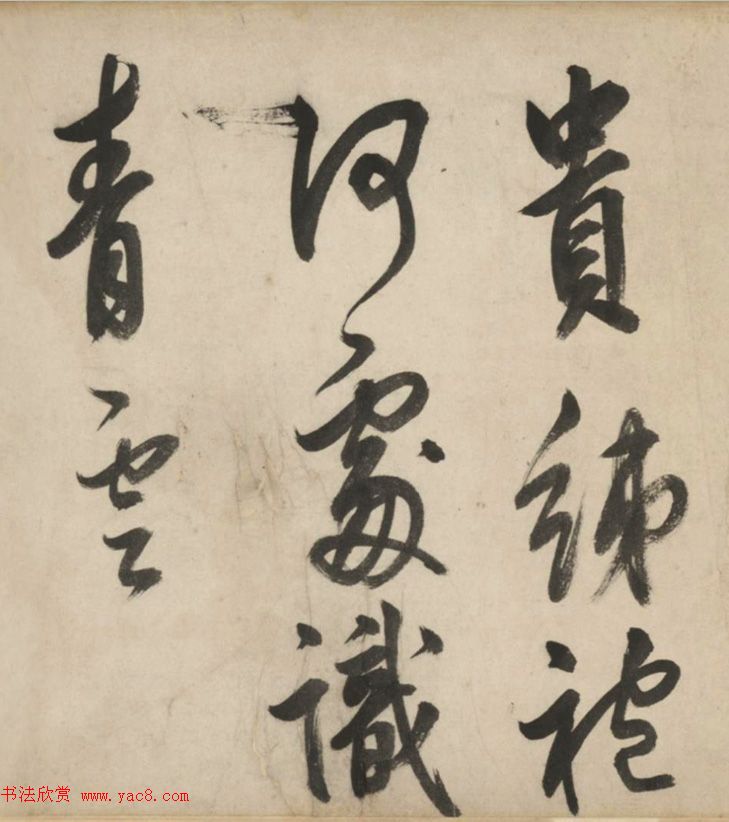 貴綈袍
何處識
青雲
书法欣赏 www.yac8.com